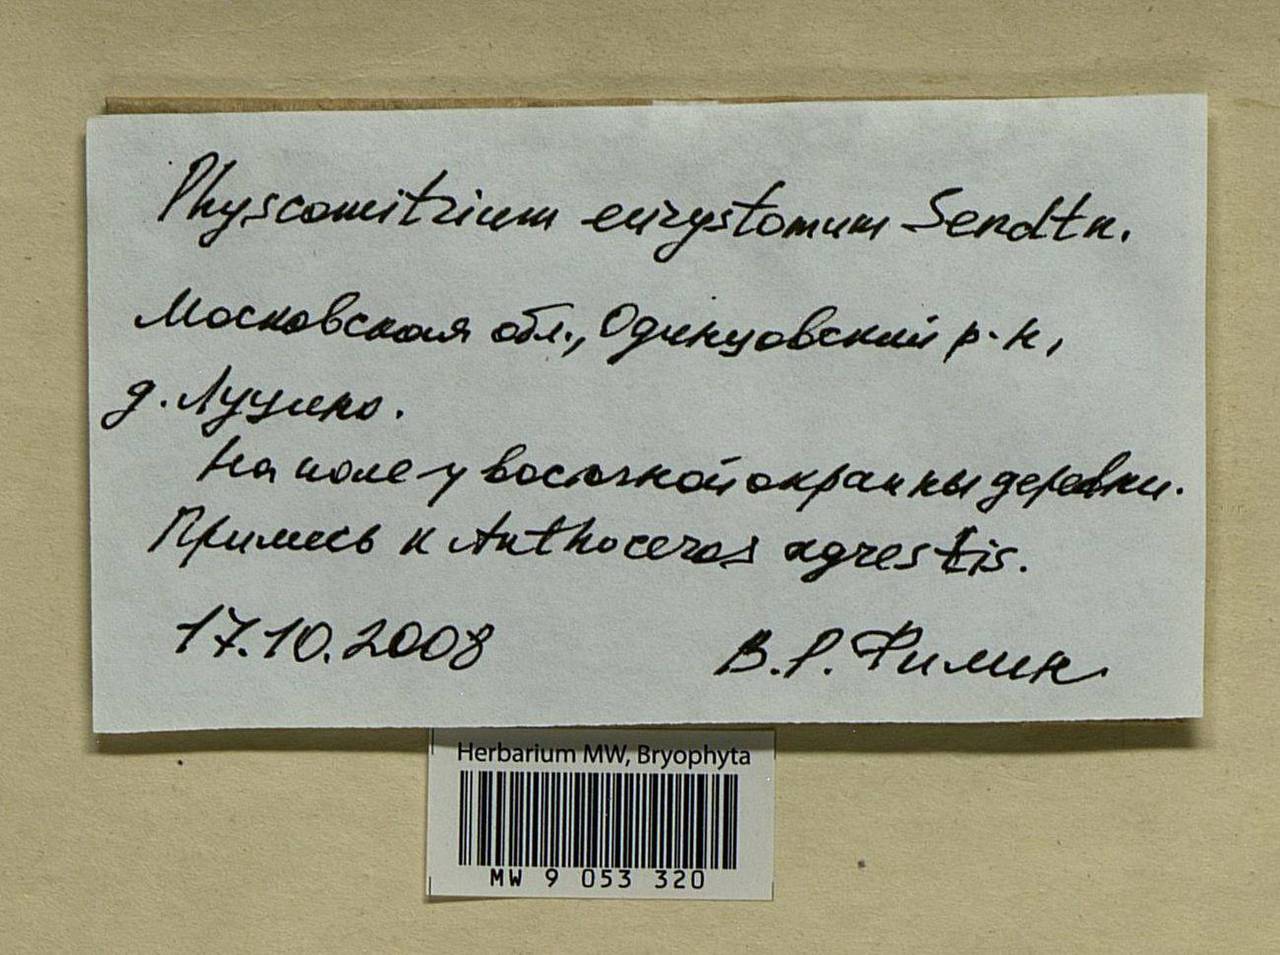 Physcomitrium eurystomum Sendtn.
Московская обл., Одинцовский р-н,
д. Луцино.
На поле у восточной окраины деревни.
Примесь к Anthoceros agrestis.
17.10.2008 В.Р. Филин
Herbarium MW, Bryophyta
MW 9 053 320